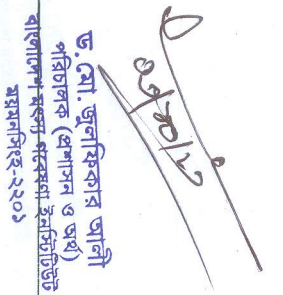 ড. মো. জুলফিকার আলী
পরিচালক (প্রশাসন ও অর্থ)
বাংলাদেশ মৎস্য গবেষণা ইনস্টিটিউট
ময়মনসিংহ-২২০১